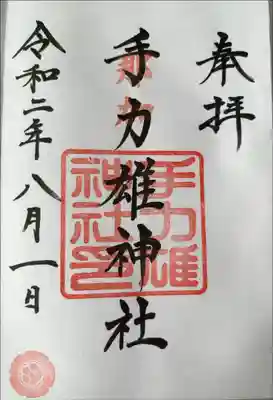 奉拝
手力雄神社
令和二年八月一日
手力雄
神社印